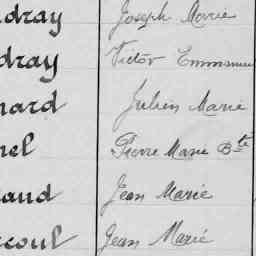 dray Joseph Marie
dray Victor Emmanue
nard Julien Marie
nel Pierre Marie Bte
aud Jean Marie
coul Jean Marie